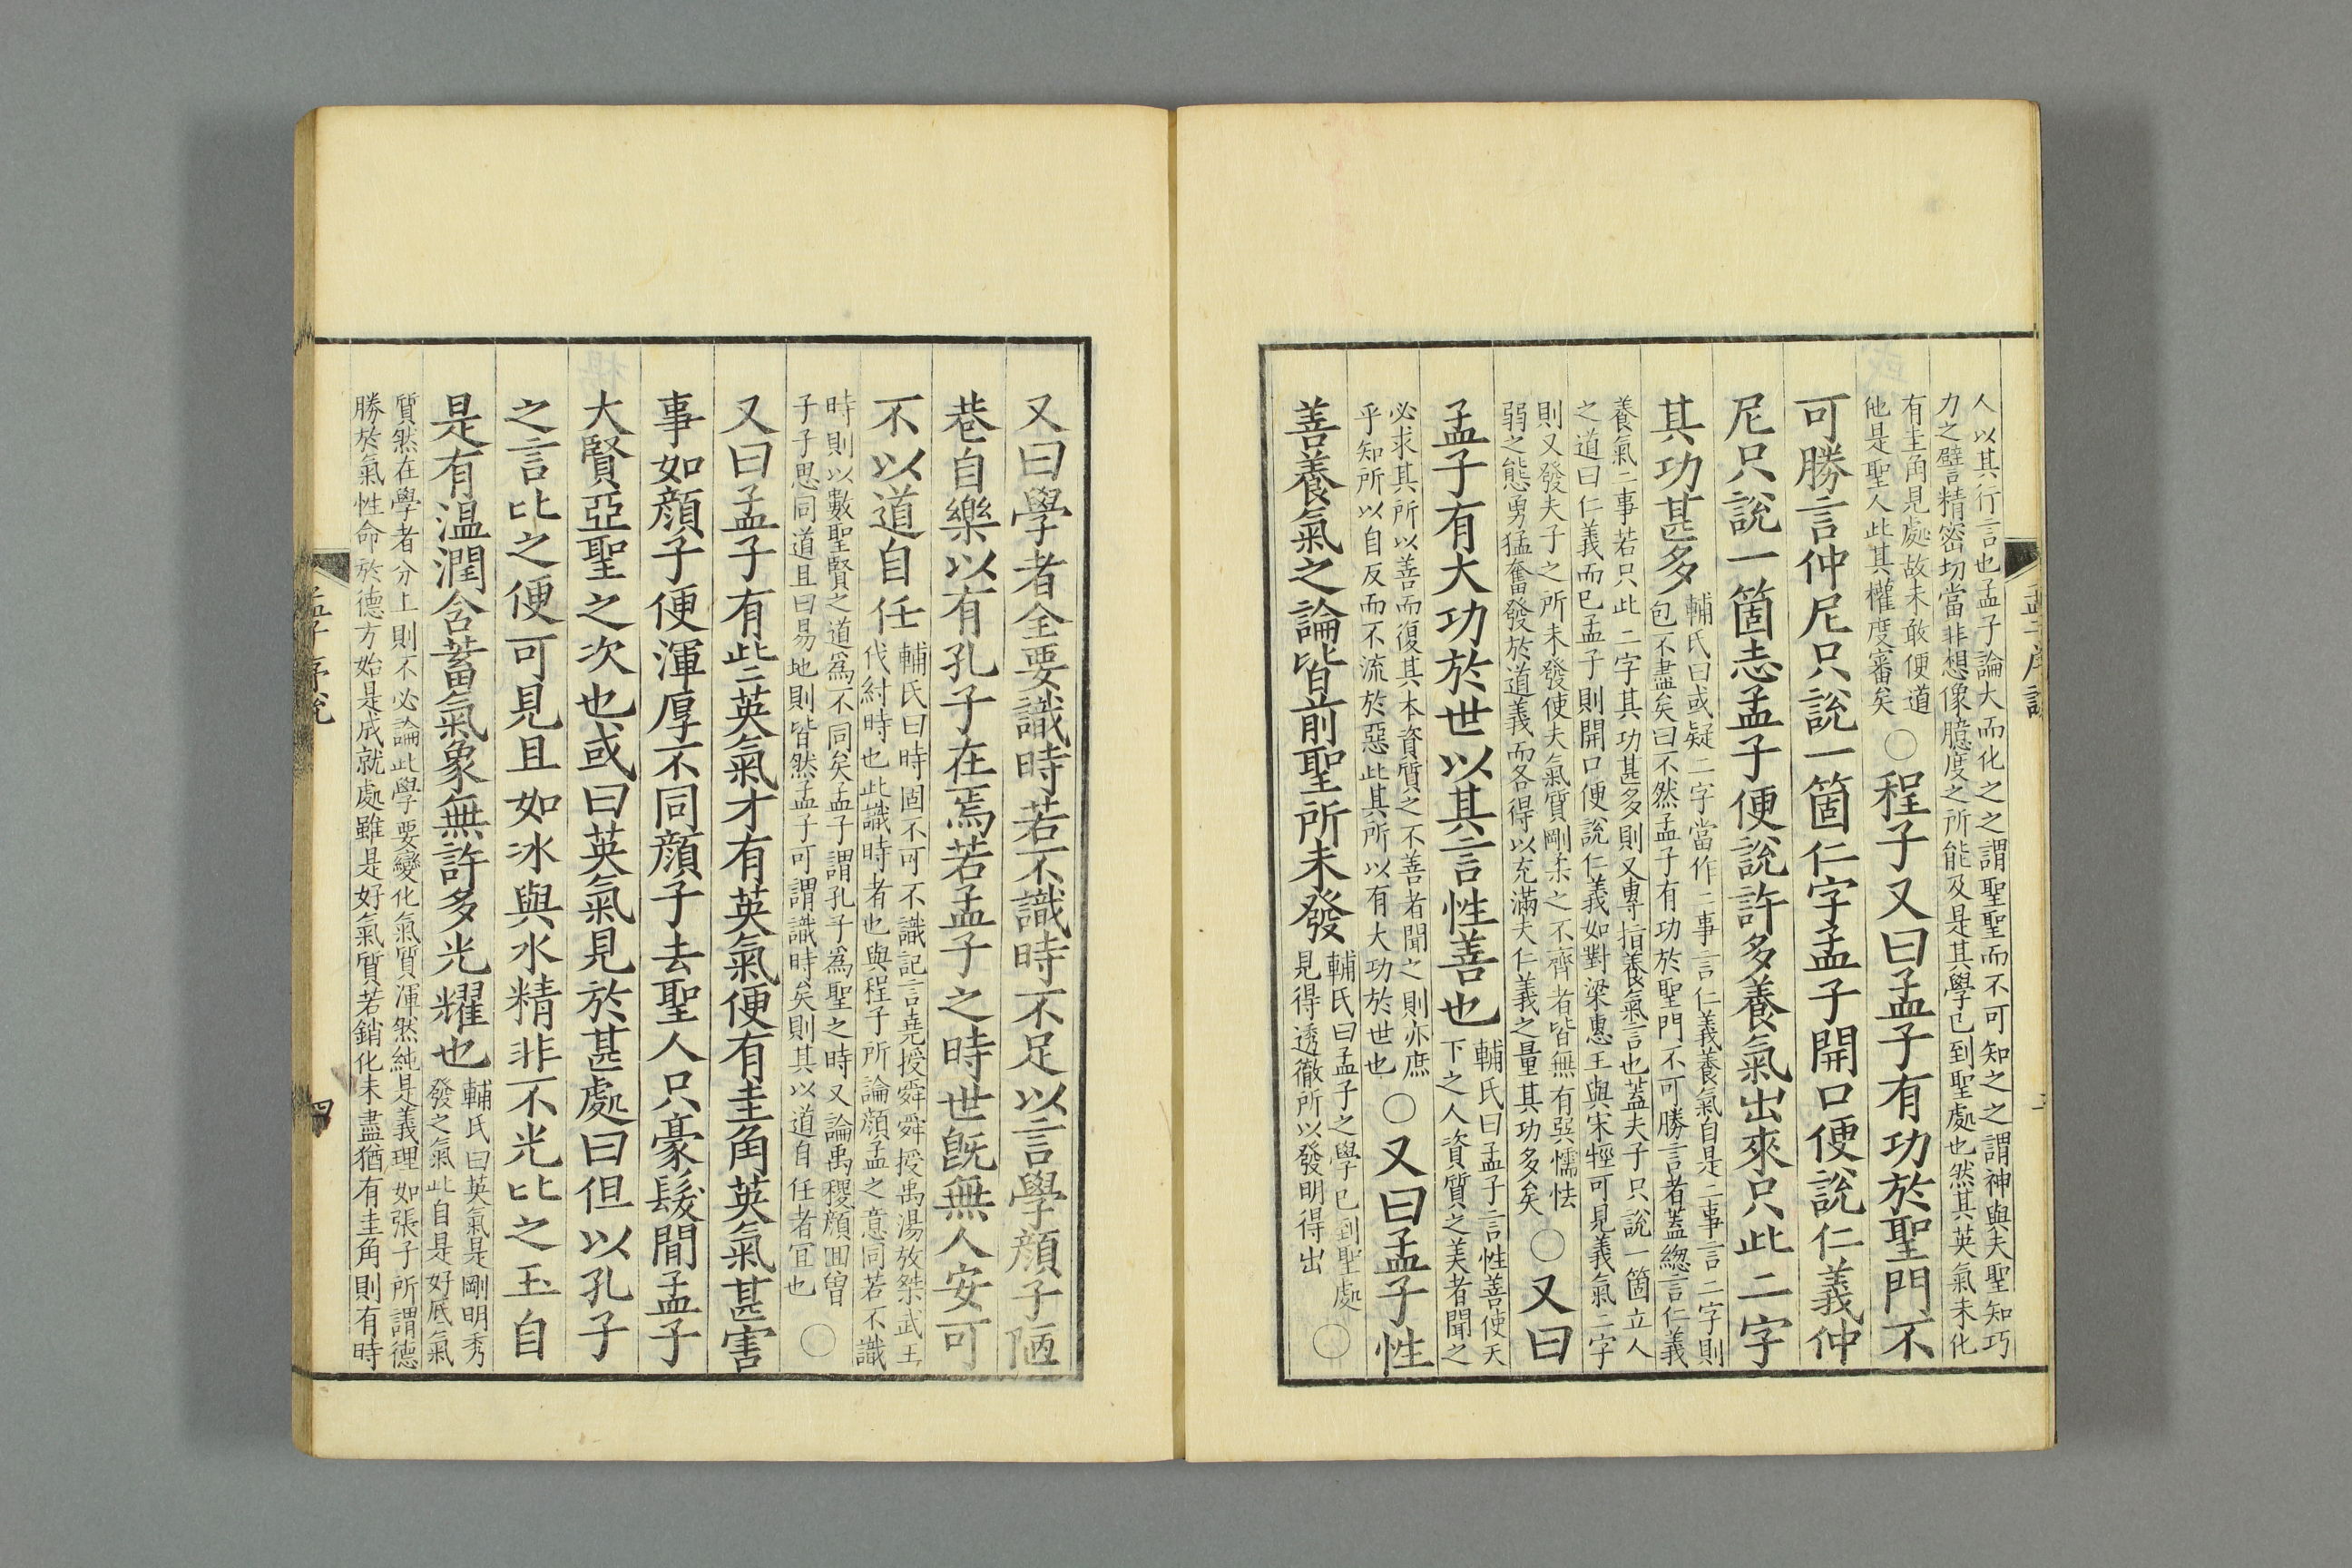 人以其行言也孟子論大而化之之謂聖聖而不可知之之謂神與夫聖知巧
力之譬言精密切當非想像臆度之所能及是其學已到聖處也然其英氣未化
有圭角見處故未敢便道
他是聖人此其權度審矣
○程子又曰孟子有功於聖門不
可勝言仲尼只說一箇仁字孟子開口便說仁義仲
尼只說一箇志孟子便說許多養氣出來只此二字
其功甚多
輔氏曰或疑二字當作二事言仁義養氣自是二事言二字則
包不盡矣曰不然孟子有功於聖門不可勝言者蓋緫言仁義
養氣二事若只此二字其功甚多則又專指養氣言也蓋夫子只說一箇立人
之道曰仁義而已孟子則開口便說仁義如對梁惠王與宋牼可見義氣二字
則又發夫子之所未發使夫氣質剛柔之不齊者皆無有巽懦怯
弱之態勇猛奮發於道義而各得以充滿夫仁義之量其功多矣
○又曰
孟子有大功於世以其言性善也
輔氏曰孟子言性善使天
下之人資質之美者聞之
必求其所以善而復其本資質之不善者聞之則亦庶
乎知所以自反而不流於惡此其所以有大功於世也
○又曰孟子性
善養氣之論皆前聖所未發
輔氏曰孟子之學已到聖處
見得透徹所以發明得出
○
又曰學者全要識時若不識時不足以言學顔子陋
巷自樂以有孔子在焉若孟子之時世旣無人安可
不以道自任
輔氏曰時固不可不識記言堯授舜舜授禹湯放桀武王
伐紂時也此識時者也與程子所論顔孟之意同若不識
時則以數聖賢之道爲不同矣孟子謂孔子爲聖之時又論禹稷顔囬曾
子子思同道且曰易地則皆然孟子可謂識時矣則其以道自任者宜也
○
又曰孟子有些英氣才有英氣便有圭角英氣甚害
事如顔子便渾厚不同顔子去聖人只豪髮間孟子
大賢亞聖之次也或曰英氣見於甚處曰但以孔子
之言比之便可見且如冰與水精非不光比之玉自
是有温潤含蓄氣象無許多光耀也
輔氏曰英氣是剛明秀
發之氣此自是好底氣
質然在學者分上則不必論此學要變化氣質渾然純是義理如張子所謂德
勝於氣性命於德方始是成就處雖是好氣質若銷化未盡猶有圭角則有時
孟子序說
四